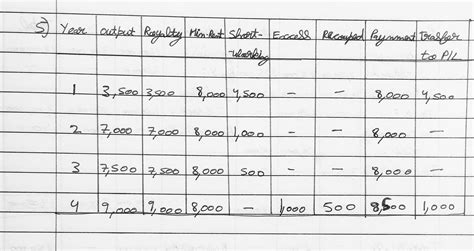 5) Year output Royalty Min.Rent Short-working Excess Recouped Payment transfer to P/L
1 3,500 3,500 8,000 4,500 - - 8,000 4,500
2 7,000 7,000 8,000 1,000 - - 8,000 -
3 7,500 7,500 8,000 500 - - 8,000 -
4 9,000 9,000 8,000 - 1,000 500 8,500 1,000